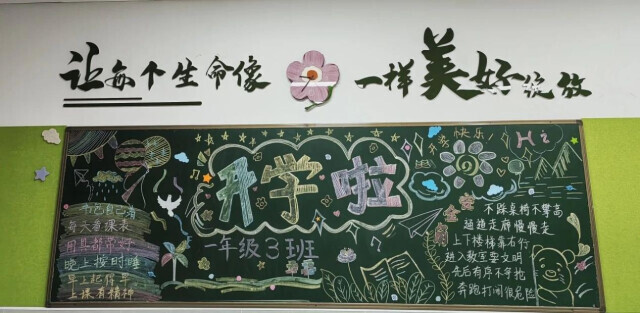 让每个生命像 一样美好绽放
开学啦
一年级3班
开学快乐
Hi
每天看课表
用具都带好
晚上按时睡
早上起得早
上课有精神
安全
不踩桌椅不攀高
过道走廊慢慢走
上下楼梯靠右行
进入教室要文明
先后有序不争抢
奔跑打闹很危险